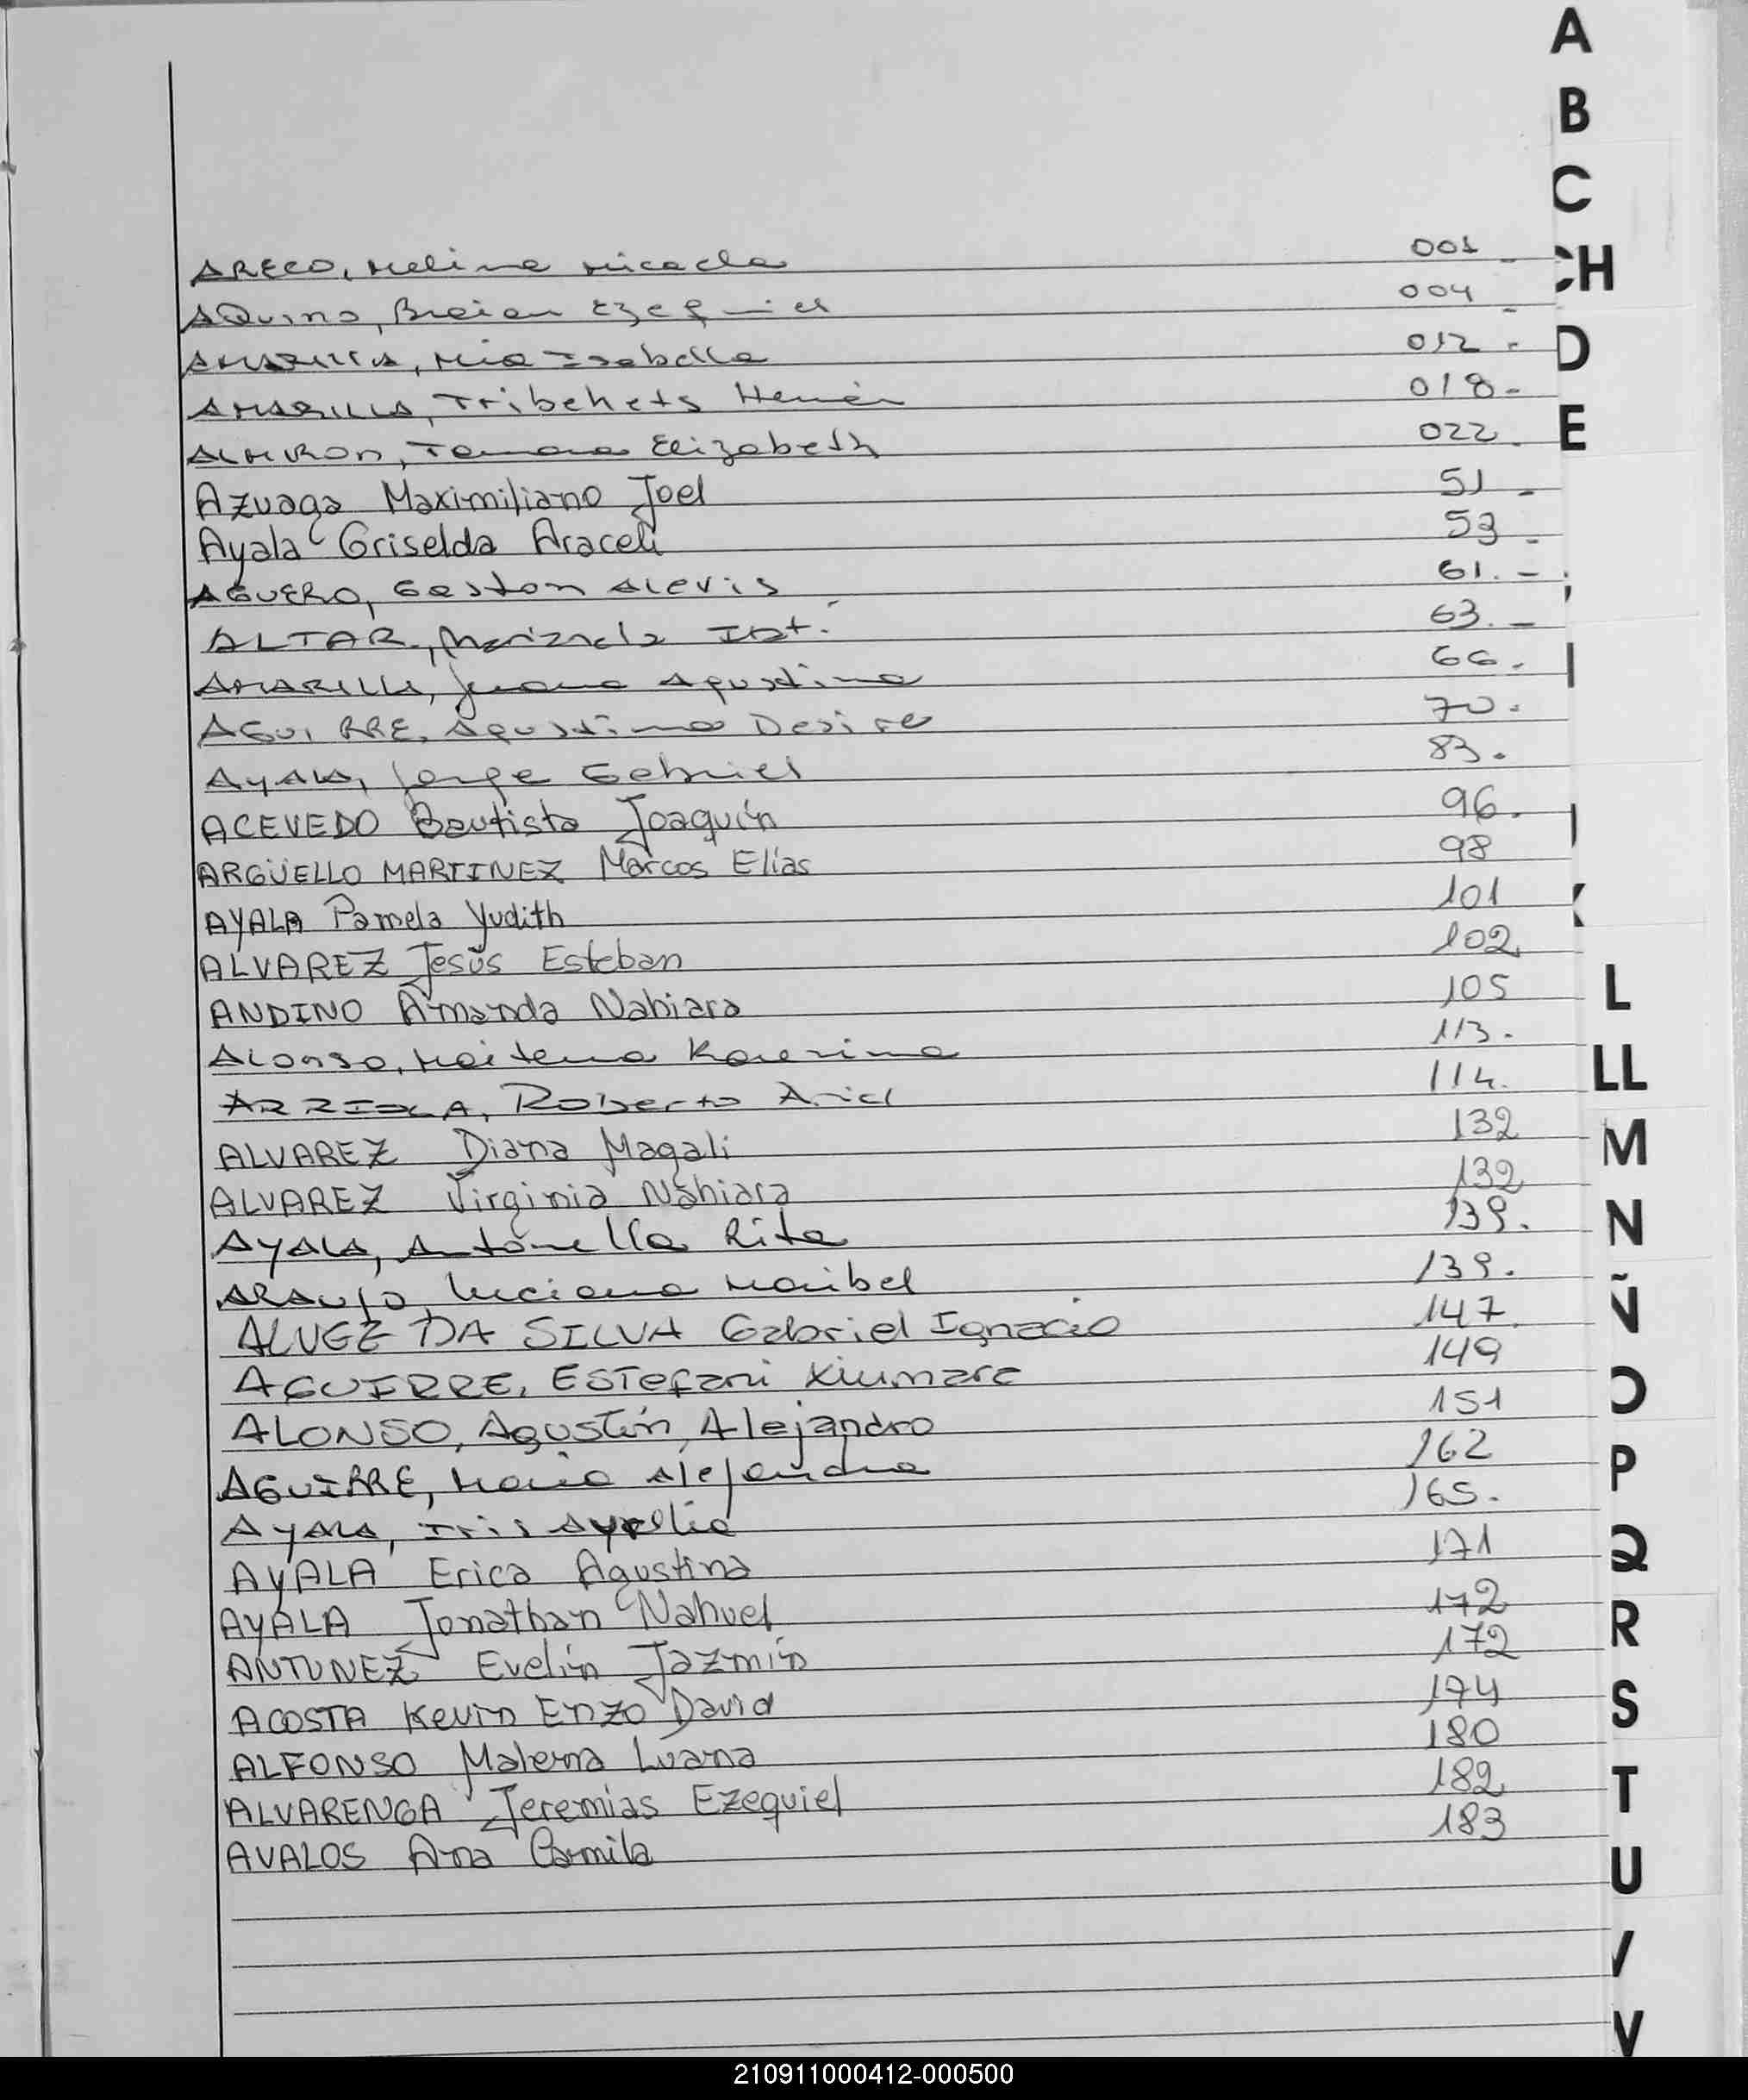 A
B
C
CH
D
E
ARECO, Melina Micaela 001 -
AQuino, Breian Ezequiel 004 -
AMARILLA, Mia Isabella 012 -
AMARILLA, Tribehets Hernán 018 -
ALMIRON, Tamara Elizabeth 022 -
Azuaga Maximiliano Joel 51 -
Ayala Griselda Araceli 53 -
AGUERO, Gaston Alexis 61. -
ALTAR, Marizela 63. -
AMARILLA, Juana Agustina 66.
AGUIRRE, Agustina Desire 70.
AyALA, Jorge Gabriel 83.
ACEVEDO Bautista Joaquín 96.
ARGÜELLO MARTINEZ Marcos Elías 98
AYALA Pamela Yudith 101
ALVAREZ Jesús Esteban 102
ANDINO Amanda Nahiara 105
ALONSO, Maitena Karerina 113.
ARRIOLA, Roberto Ariel 114.
ALVAREZ Diana Magali 132
ALVAREZ Virginia Nahiara 132
AyALA, Antonella Rita 139.
ARAUJO, Luciana Maribel 139.
ALVGE DA SILVA Gabriel Ignacio 147
AGUIRRE, ESTefani Xiumara 149
ALONSO, Agustín, Alejandro 151
AGUIRRE, Maria Alejandra 162
AyALA, Iris 165.
AYALA Erica Agustina 171
AYALA Jonathan Nahuel 172
ANTUNEZ Evelin Jazmín 172
ACOSTA Kevin Enzo David 174
ALFONSO Malena Luana 180
ALVARENGA Jeremias Ezequiel 182
AVALOS Ana Camila 183
L
LL
M
N
Ñ
O
P
Q
R
S
T
U
V
210911000412-000500